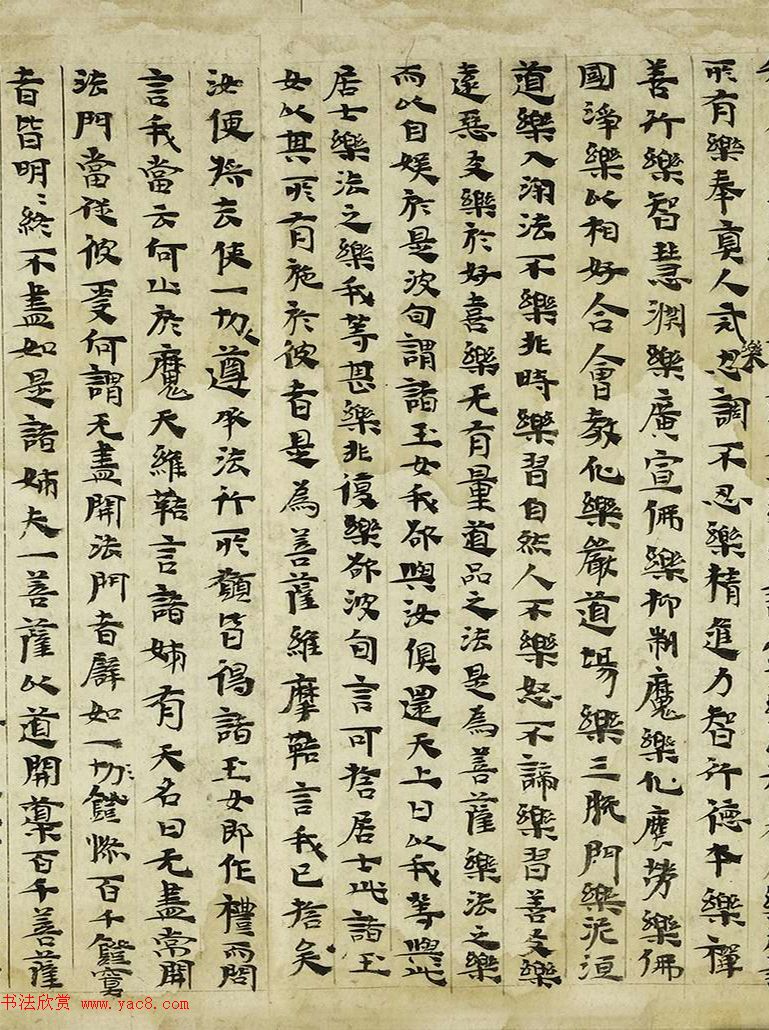 所有樂奉真人式樂忍調不忍樂精進力智行德本樂禪
善行樂智慧淵樂廣宣佛樂抑制魔樂化塵勞樂佛
國淨樂以相好合會教化樂嚴道場樂三脫門樂泥洹
道樂入深法不樂非時樂習自然人不樂怒不諦樂習善友樂
遠惡友樂於好喜樂无有量道品之法是為菩薩樂法之樂
而以自娛於是波旬謂諸玉女我欲與汝俱還天上曰以我等與此
居士樂法之樂我等甚樂非復樂欲波旬言可捨居士此諸玉
女以其所有施於彼者是為菩薩維摩鞊言我已捨矣
汝便將去使一切人遵承法行所願皆得諸玉女即作禮而問
言我當云何止於魔天維鞊言諸姊有天名曰无盡常開
法門當從彼受何謂无盡開法門者譬如一切燈燃百千燈冥
者皆明〻終不盡如是諸姊夫一菩薩以道開導百千菩薩
书法欣赏 www.yac8.com